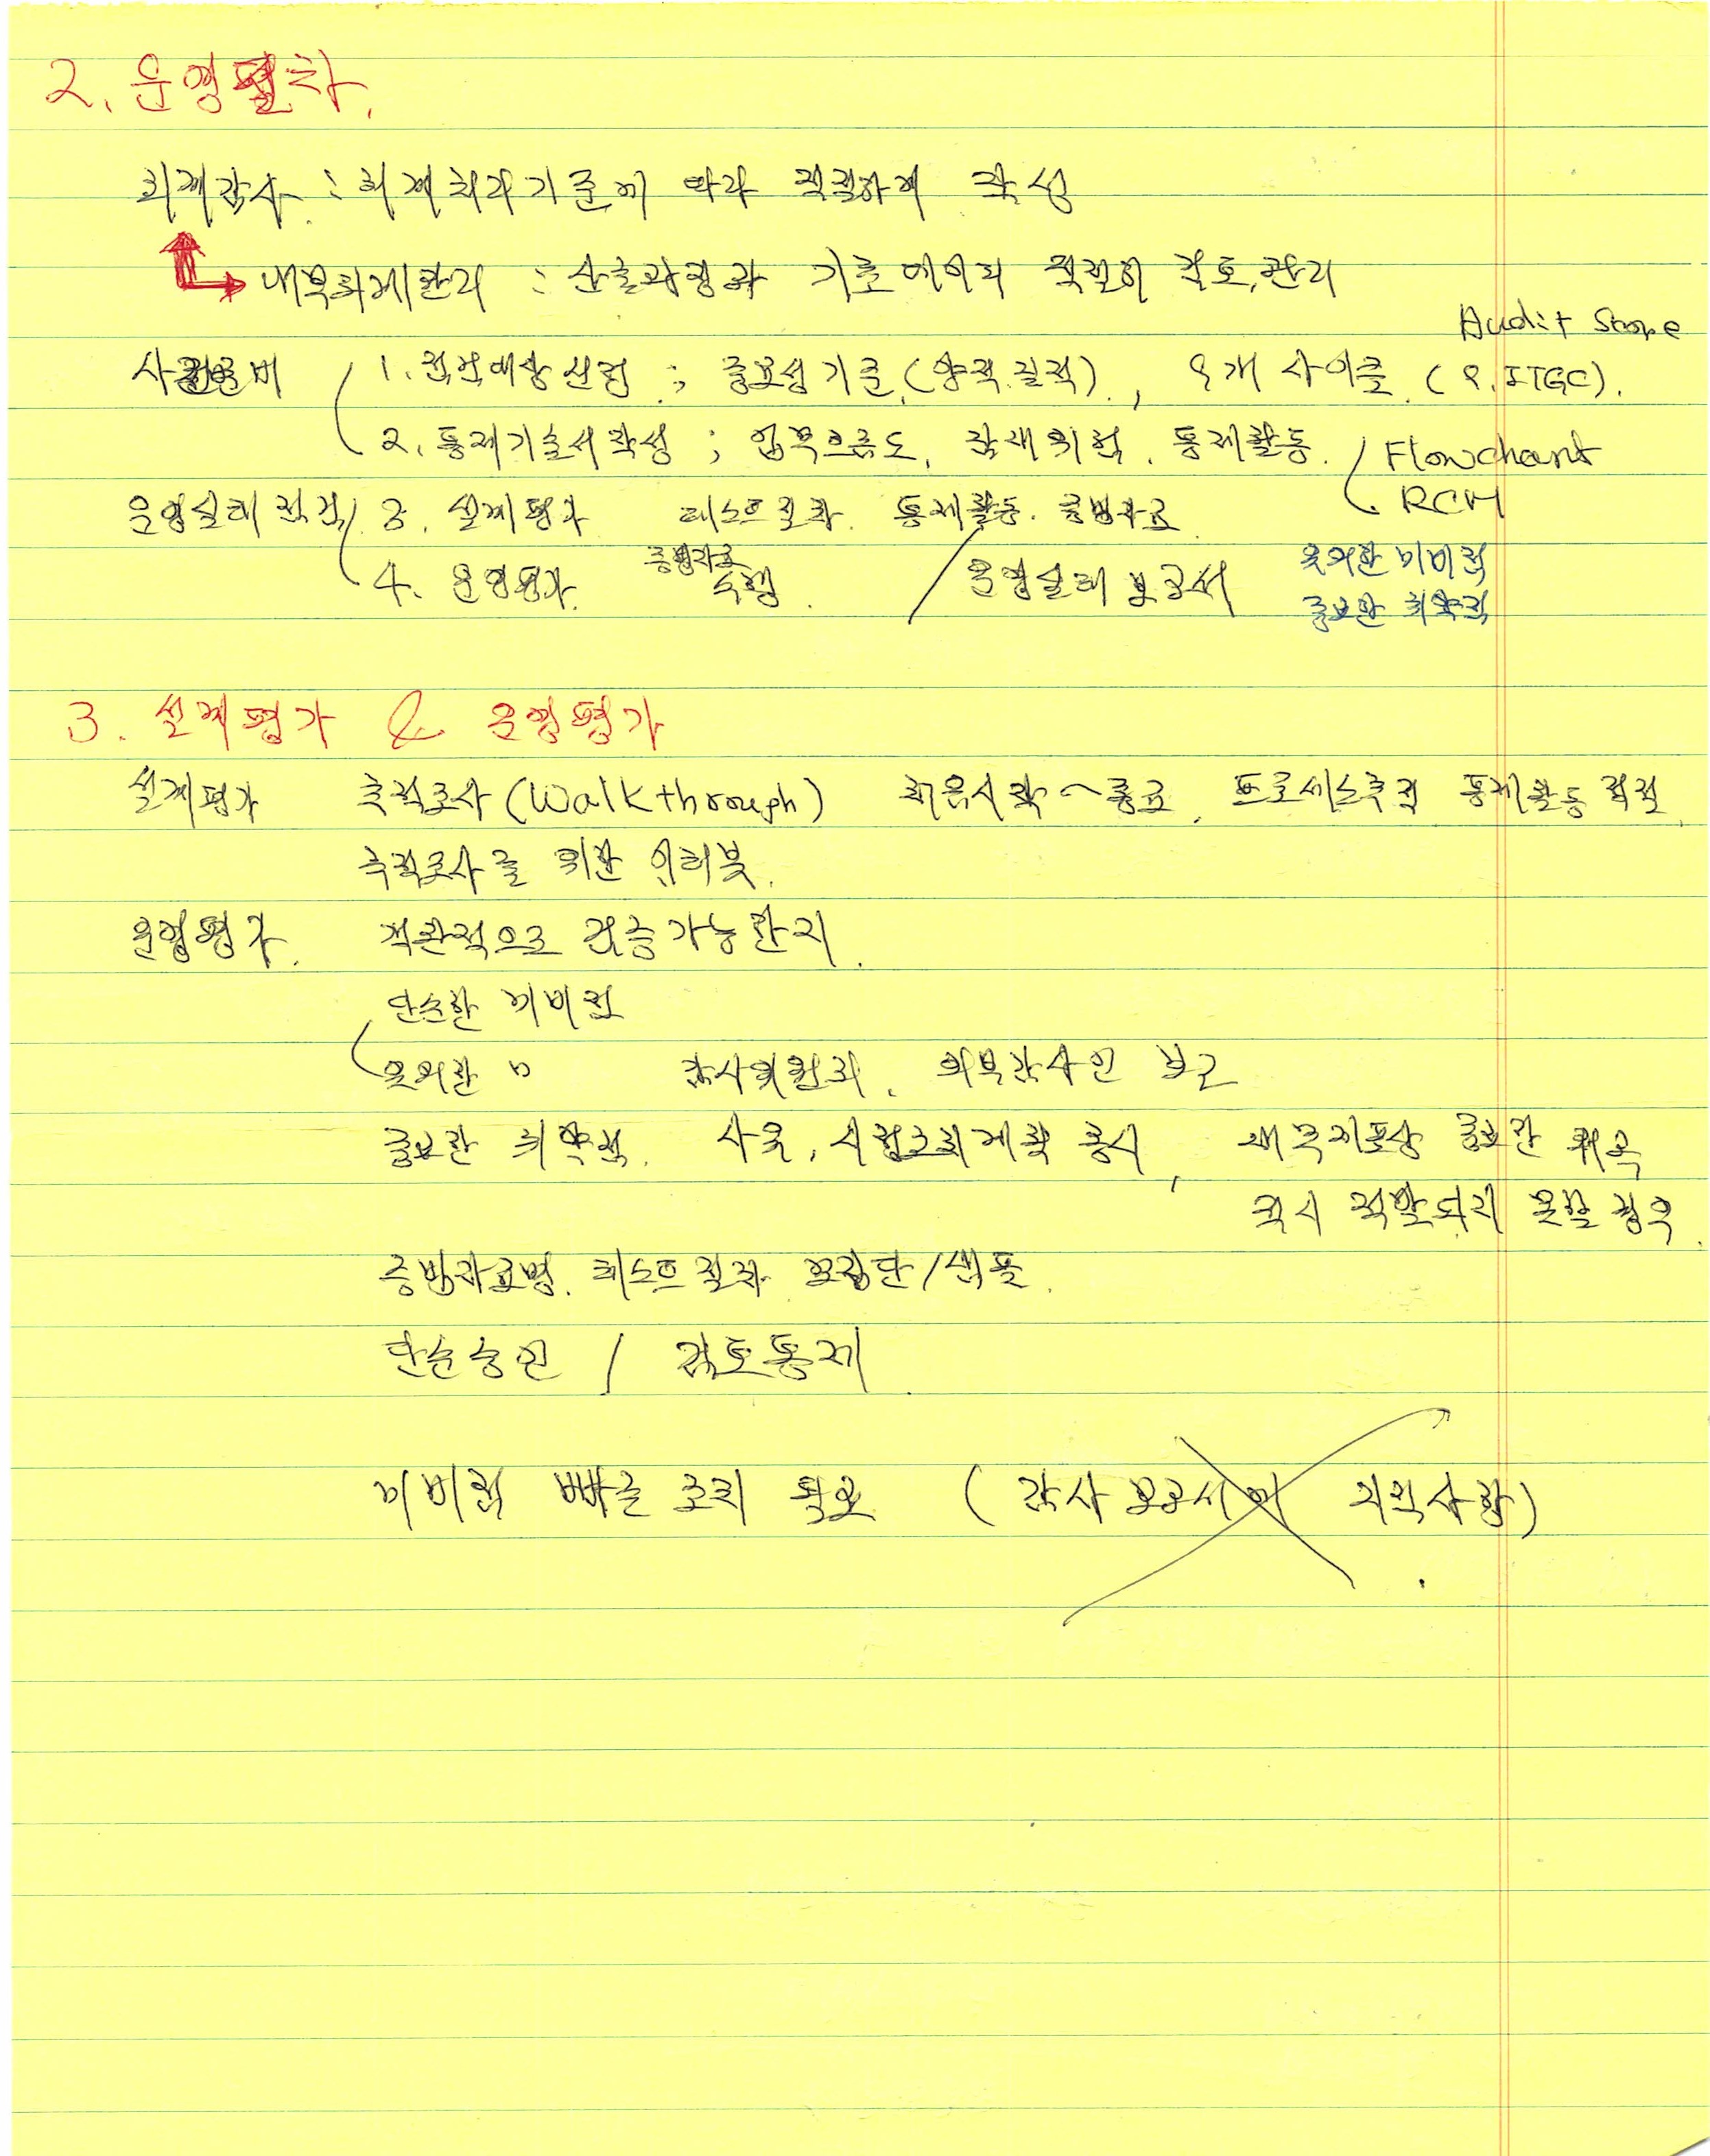 2. 운영절차.
회계감사 : 회계처리기준에 따라 적절하게 작성
내부회계관리 : 산출과정과 기준에의거 적절히 검토, 관리
Audit Scope
사전준비 1. 점검대상선정 ; 중요성기준 (양적.질적). , 9개 사이클. ( 9. ITGC).
2. 통제기술서작성 ; 업무흐름도, 잠재위험, 통제활동. Flowchart
RCM
운영실태점검 3. 설계평가 테스트절차. 통제활동. 증빙자료
4. 운영평가. 증빙자료 수령. / 운영실태 보고서 유의한 미비점
중요한 취약점
3. 설계평가 & 운영평가
설계평가 추적조사 (Walkthrough) 처음시작~종료. 프로세스추적 통제활동 적절
추적조사를 위한 인터뷰.
운영평가. 객관적으로 검증가능한지.
단순한 미비점
유의한 " 감사위원회. 외부감사인 보고
중요한 취약점. 사유, 시정조치계획 공시, 재무제표상 중요한 왜곡
적시 적발되지 못할 경우.
증빙자료명. 테스트절차 모집단/샘플.
단순승인 / 검토통제.
미비점 빠른 조치 필요 ( 감사보고서에 지적사항)